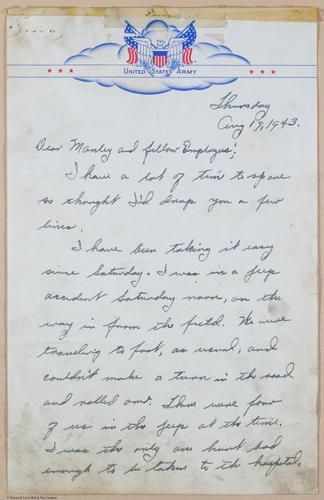 UNITED STATES ARMY
Thursday
Aug 19, 1943.
Dear Manley and fellow Employees;
I have a lot of time to spare
so thought I'd drop you a few
lines.
I have been taking it easy
since Saturday. I was in a jeep
accident Saturday noon, on the
way in from the field. We were
traveling to fast, as usual, and
couldn't make a turn in the road
and rolled over. There were four
of us in the jeep at the time.
I was the only one hurt bad
enough to be taken to the hospital,